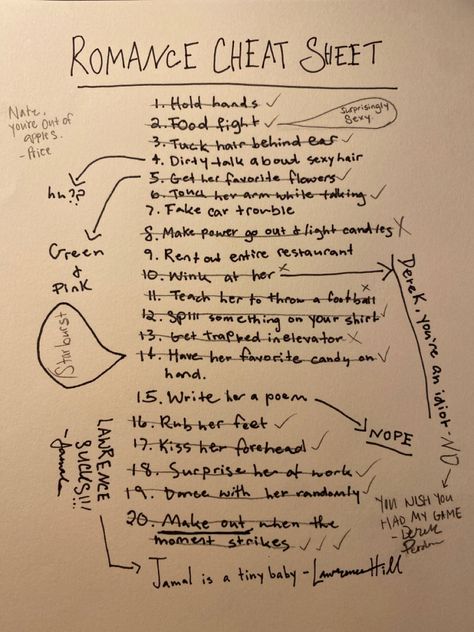 ROMANCE CHEAT SHEET
Nate,
you're out of
apples.
- Price
1. Hold hands ✓
2. Food fight ✓
Surprisingly
Sexy.
3. Tuck hair behind ear ✓
4. Dirty talk aboud sexy hair
huh??
5. Get her favorite flowers ✓
Green
&
Pink
6. Touch her arm while talking ✓
7. Fake car trouble
8. Make power go out & light candles X
9. Rent out entire restaurant
10. Wink at her X
Derek, you're an idiot - NO
11. Teach her to throw a football X
12. Spill something on your shirt ✓
13. Get trapped in elevator X
14. Have her favorite candy on ✓
hand.
Starburst
15. Write her a poem
NOPE
16. Rub her feet ✓
17. Kiss her forehead ✓
18. Surprise her at work ✓
19. Dance with her randomly ✓
20. Make out when the
moment strikes ✓ ✓ ✓
LAWRENCE
SUCKS!!!
- Jamal
YOU WISH YOU
HAD MY GAME
- Derek
Jamal is a tiny baby - Lawrence Hill